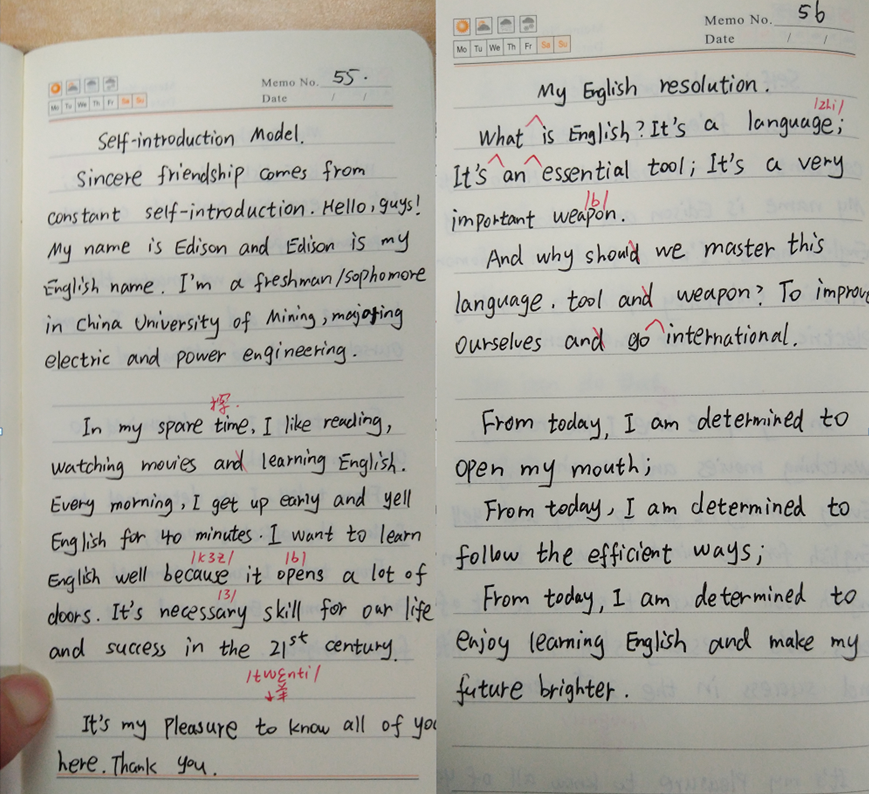 Memo No. 55.
Mo Tu We Th Fr Sa Su
Date / /
Self-introduction Model.
Sincere friendship comes from
constant self-introduction. Hello, guys!
My name is Edison and Edison is my
English name. I'm a freshman/sophomore
in China University of Mining, majoring
electric and power engineering.
In my spare time, I like reading,
watching movies and learning English.
Every morning, I get up early and yell
English for 40 minutes. I want to learn
/kɜz/ /b/
English well because it opens a lot of
/ɜ/
doors. It's necessary skill for our life
and success in the 21st century.
/twɛnti/
It's my pleasure to know all of you
here. Thank you.
Memo No. 56
Mo Tu We Th Fr Sa Su
Date / /
My English resolution.
/zhi/
What is English? It's a language;
It's an essential tool; It's a very
/b/
important weapon.
And why should we master this
language. tool and weapon? To improve
ourselves and go international.
From today, I am determined to
open my mouth;
From today, I am determined to
follow the efficient ways;
From today, I am determined to
enjoy learning English and make my
future brighter.